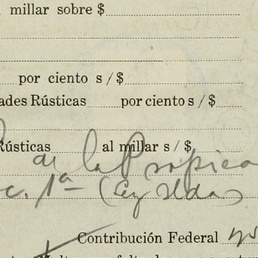 millar sobre $
por ciento s / $
ades Rústicas por ciento s / $
Rústicas al millar s / $
de la Propiea
c. 1ª (Ley
Contribución Federal